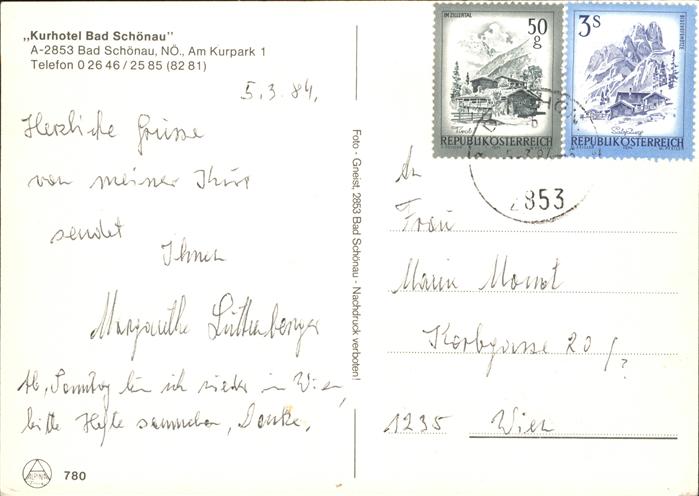 „Kurhotel Bad Schönau"
A-2853 Bad Schönau, NÖ., Am Kurpark 1
Telefon 0 26 46 / 25 85 (82 81)
5.3.84,
Herzliche Grüsse
von meiner Kur
sendet
Ihnen
Margarethe
Ab, Sonntag bin ich wieder in Wien,
bitte Hefte sammeln, Danke.
ALPINA
780
Foto - Gneist, 2853 Bad Schönau - Nachdruck verboten!
IM ZILLERTAL
50
g
Tirol
REPUBLIK ÖSTERREICH
3 S
Salzburg
REPUBLIK ÖSTERREICH
2853
An
Frau
Maria
Korbgasse 20/?
1235 Wien